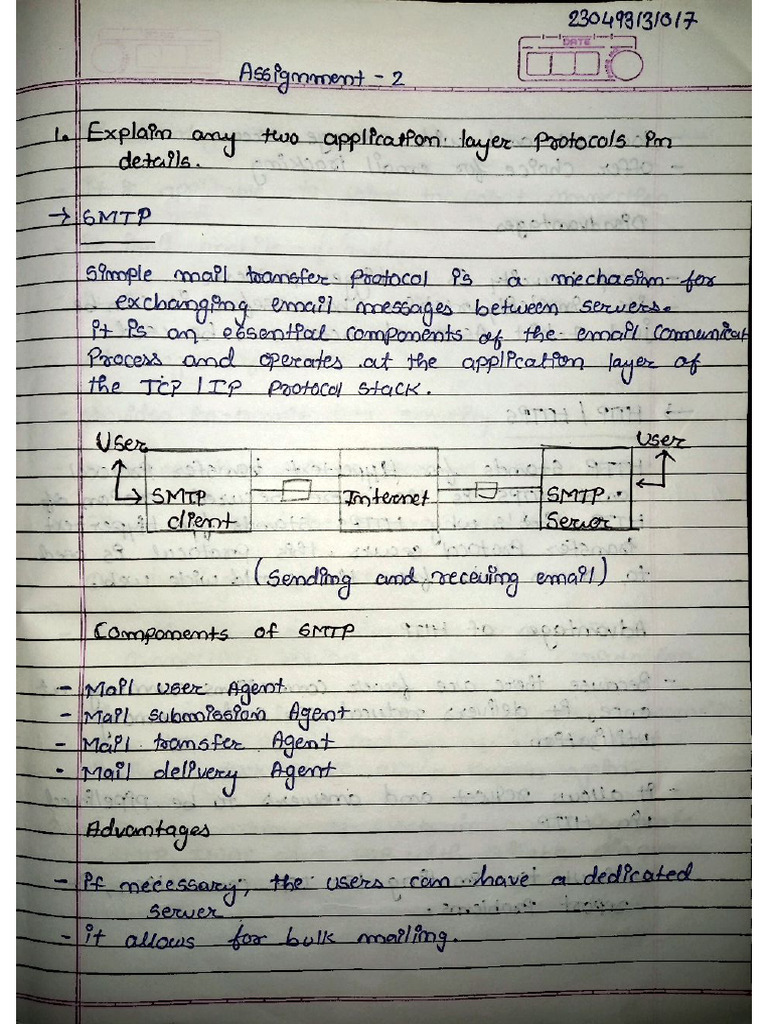 230493131017
DATE
Assignment - 2
1. Explain any two application layer Protocols in
details.
→ SMTP
Simple mail transfer Protocol is a mechasim for
exchanging email messages between servers.
it is an essential components of the email Communicat
Process and operates at the application layer of
the TCP / IP Protocol stack.
User User
SMTP Internet SMTP
client Server
(Sending and receiving email)
Components of SMTP
- Mail user Agent
- Mail submission Agent
- Mail transfer Agent
- Mail delivery Agent
Advantages
- if necessary, the users can have a dedicated
server
- it allows for bulk mailing.